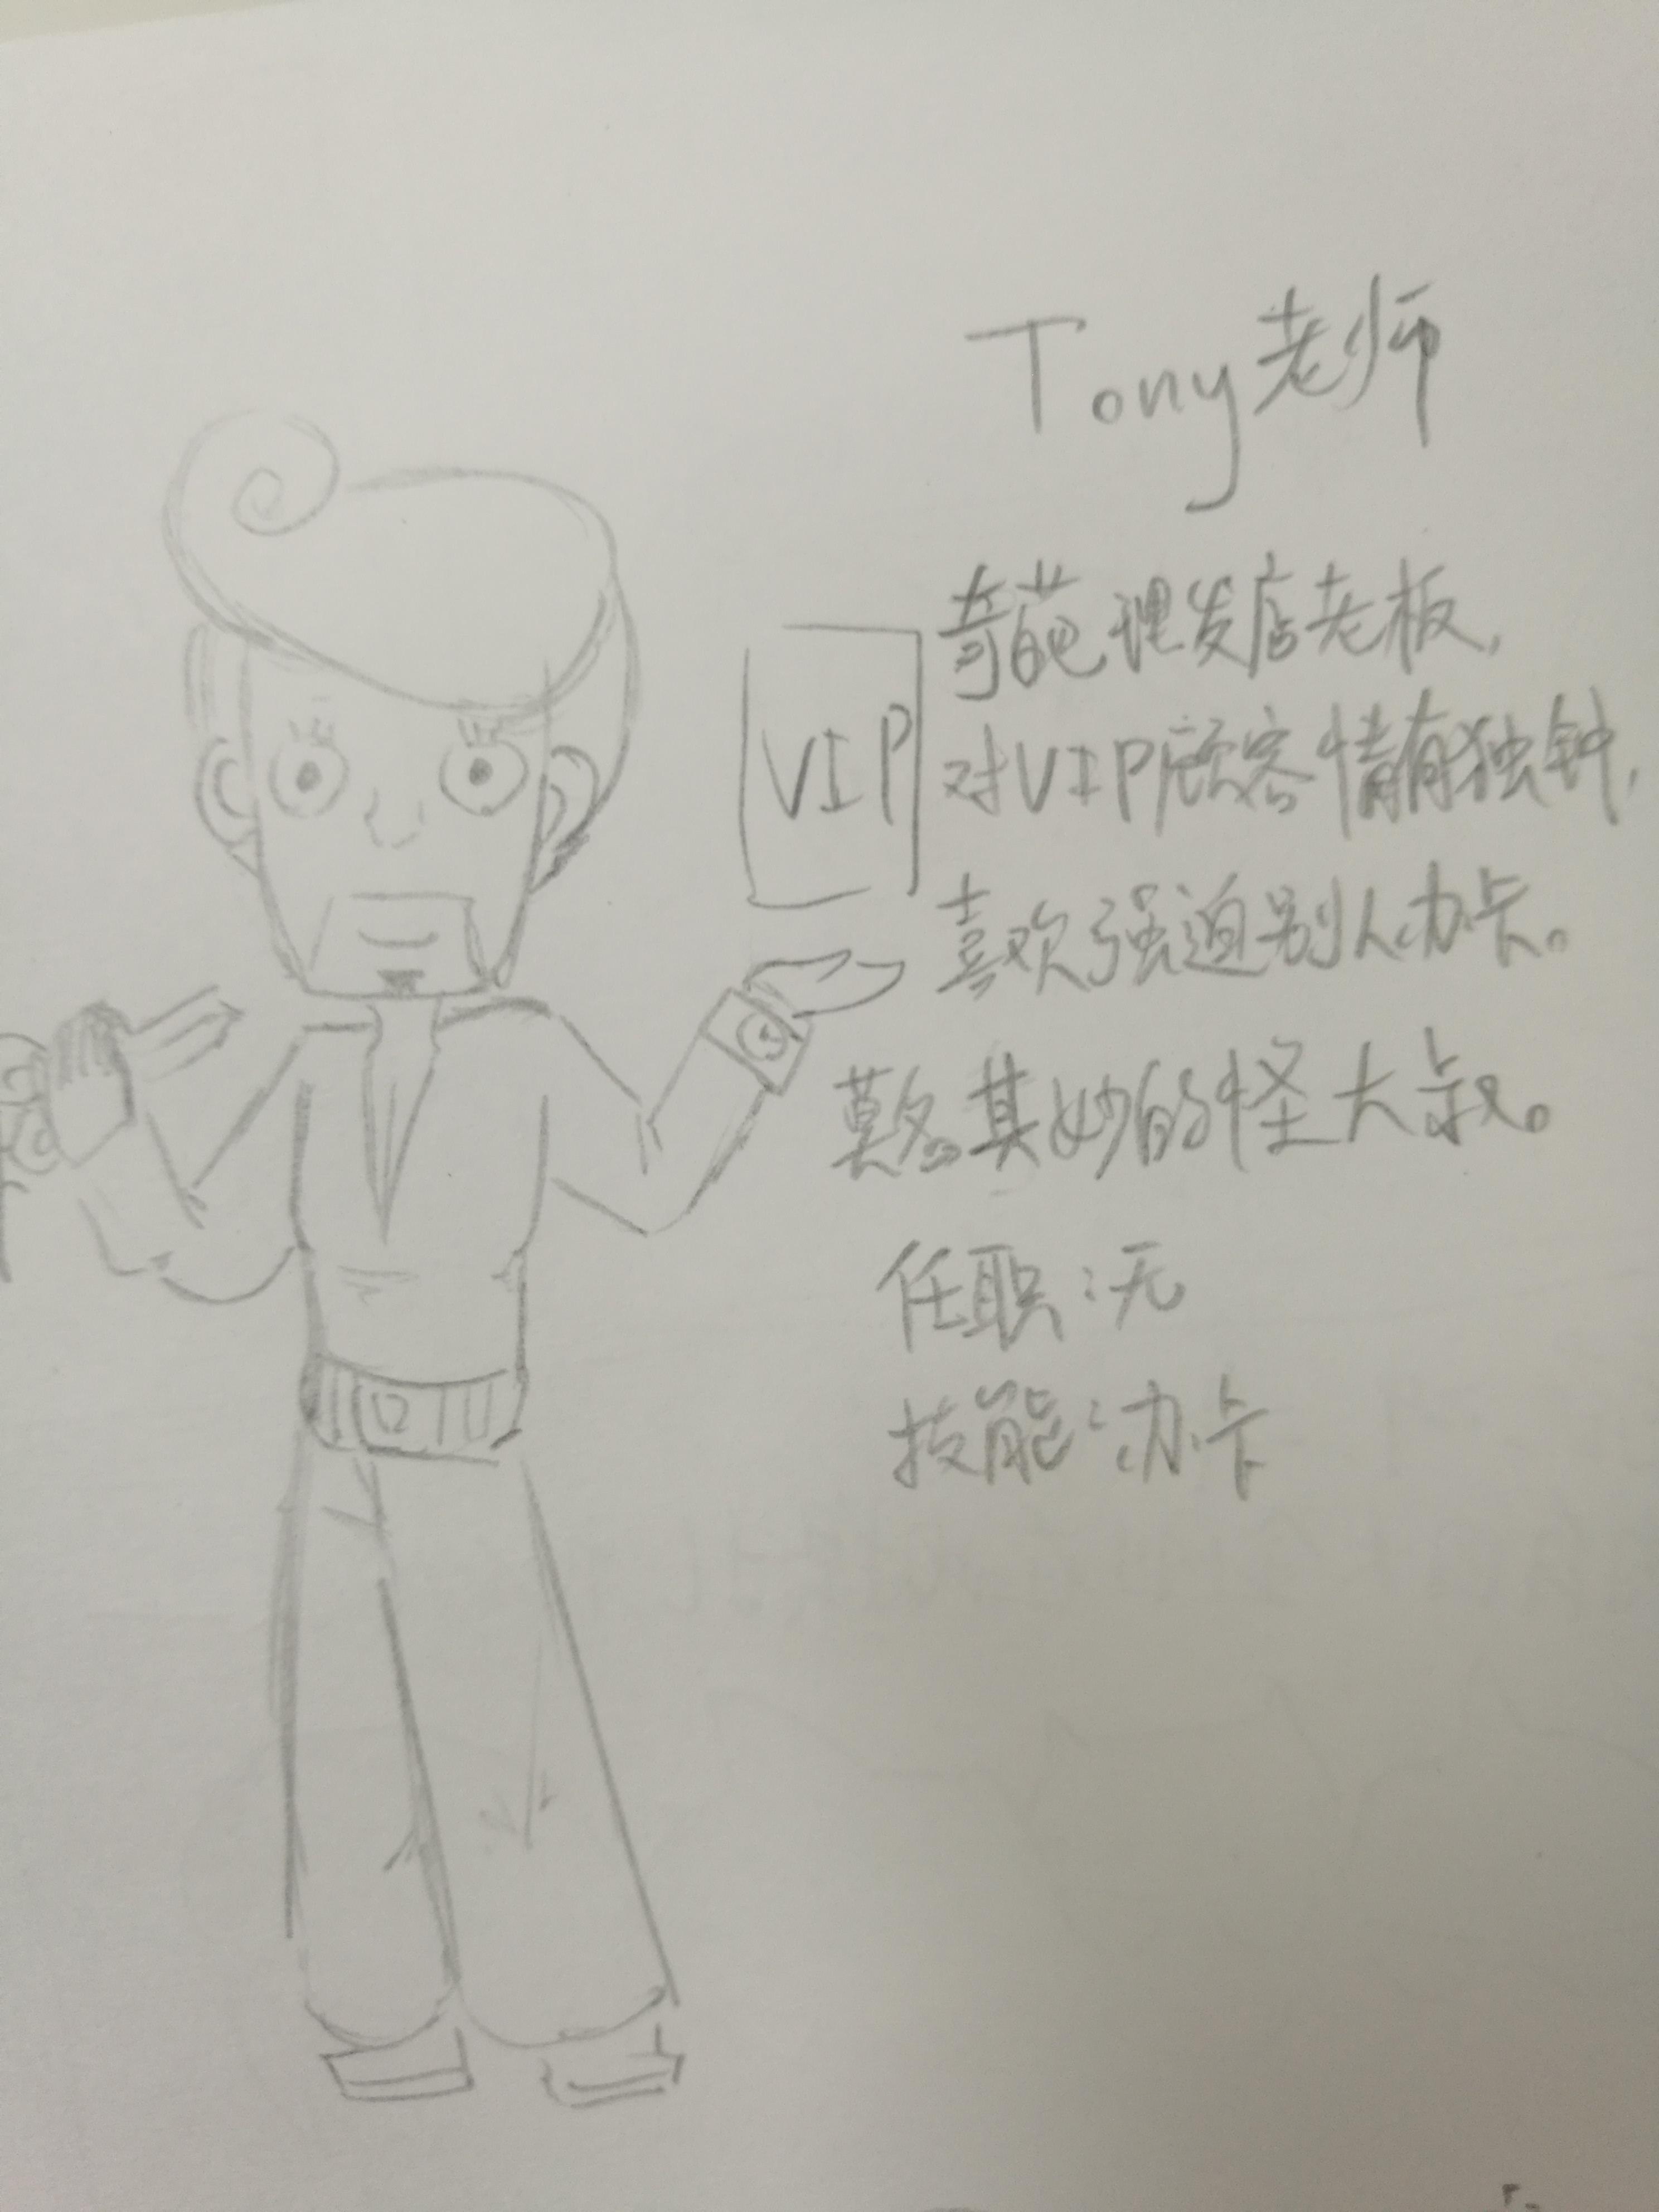 Tony老师
奇葩理发店老板,
VIP
对VIP顾客情有独钟,
喜欢强迫别人办卡。
莫名其妙的怪大叔。
任职:无
技能:办卡